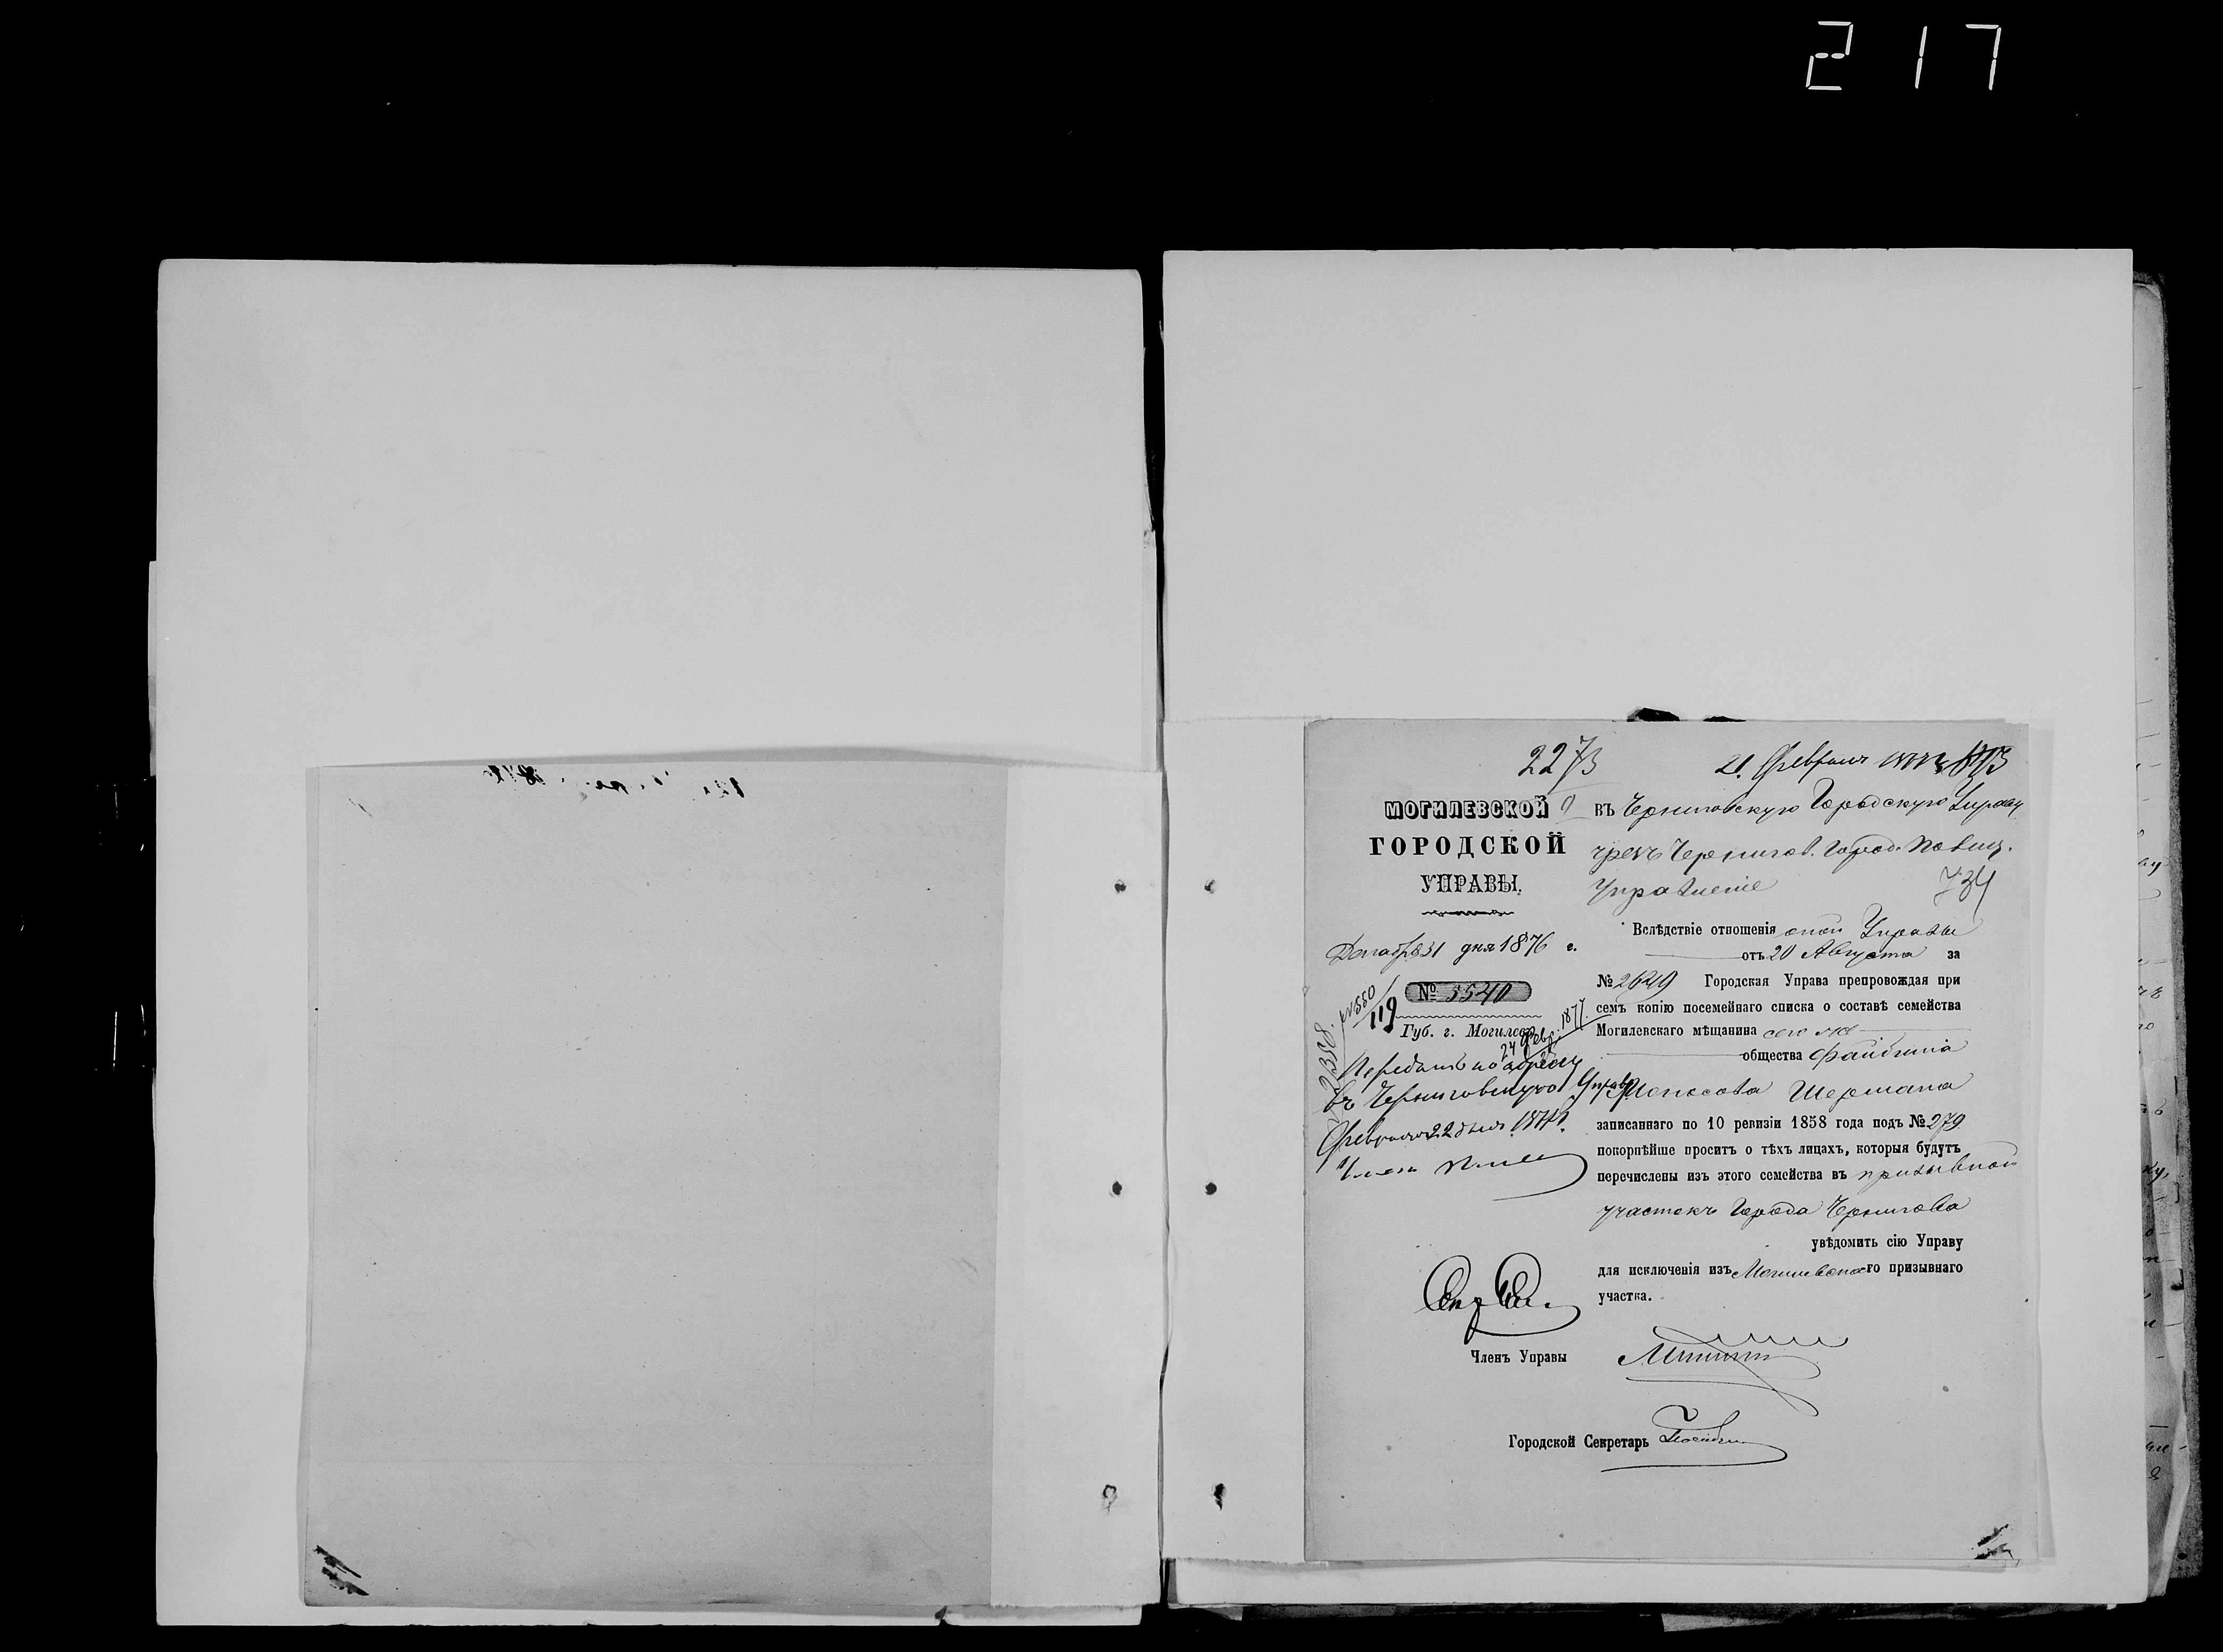 217
2273
21 Февраля
МОГИЛЕВСКОЙ
ГОРОДСКОЙ
УПРАВЫ.
Декабря 31 дня 1876 г.
№ 5540
119
Губ. г. Могилевъ
24 Февр. 1877.
Передать по адресу
въ Черниговскую Управу
Февраля 22 дня
въ Черниговскую Городскую Управу
чрезъ Чернигов. Город. Полиц.
Управленіе
734
Вслѣдствіе отношенія оной Управы
отъ 20 Августа за
№ 2649 Городская Управа препровождая при
семъ копію посемейнаго списка о составѣ семейства
Могилевскаго мѣщанина
общества Файбиша
Шермана
записаннаго по 10 ревизіи 1858 года подъ № 279
покорнѣйше проситъ о тѣхъ лицахъ, которыя будутъ
перечислены изъ этого семейства въ призывной
участокъ Города Чернигова
увѣдомить сію Управу
для исключенія изъ Могилевска-го призывнаго
участка.
Членъ Управы
Городской Секретарь